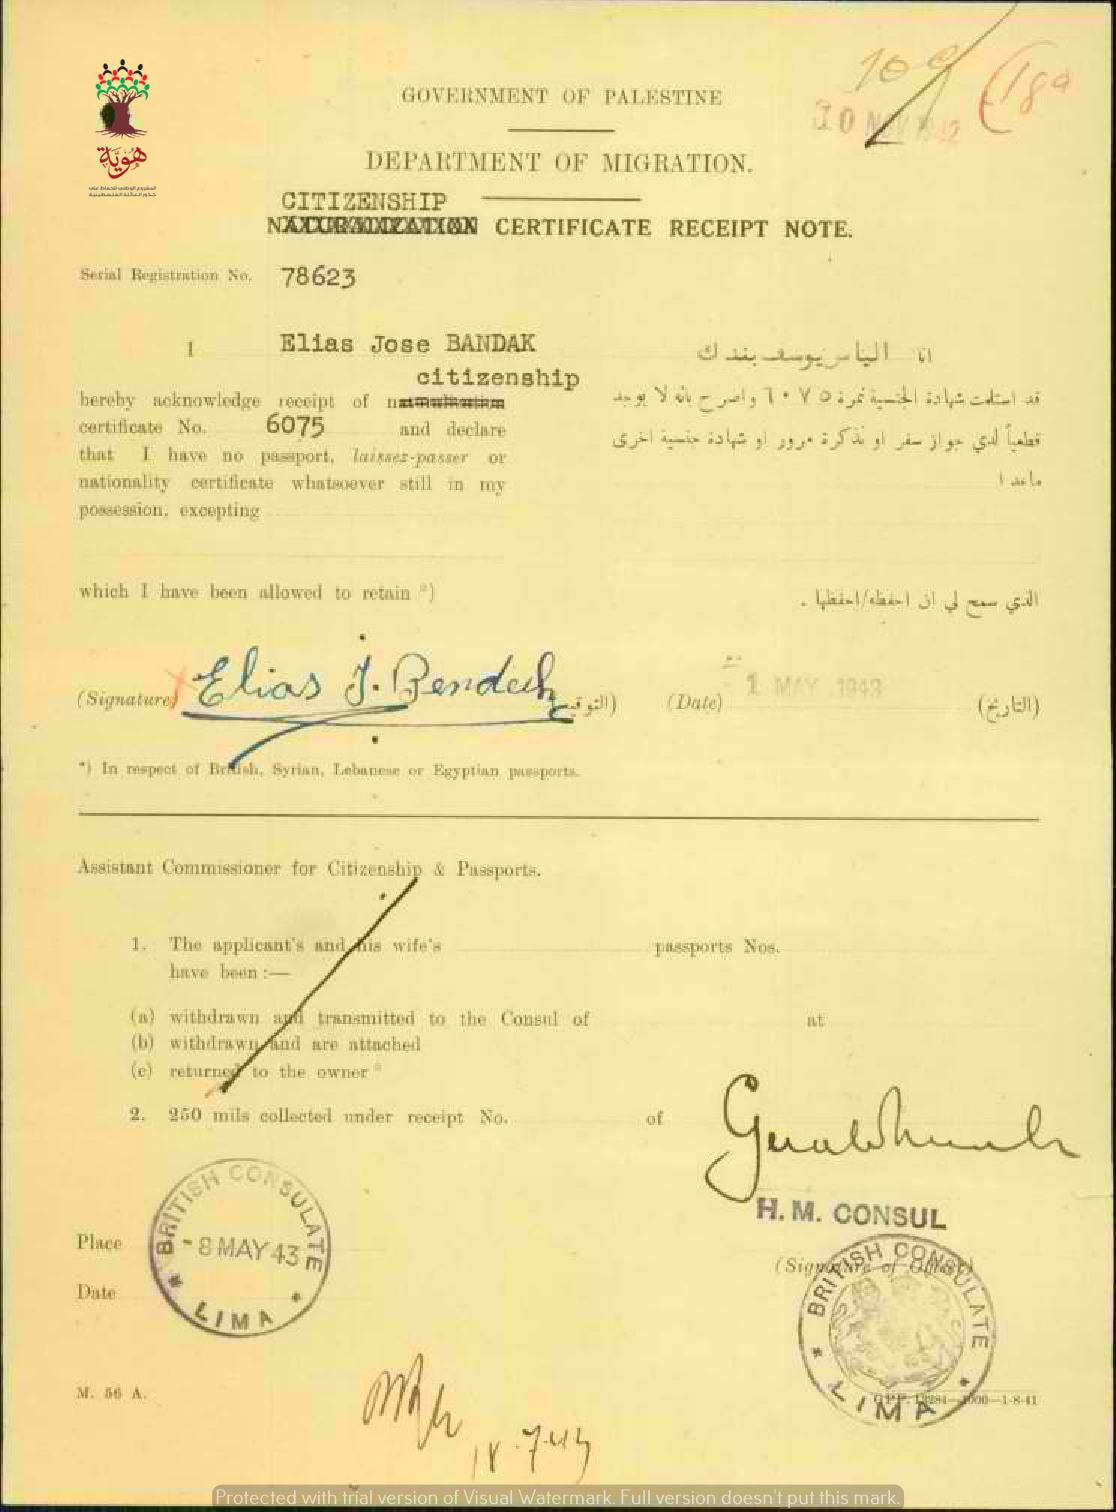 هوية
GOVERNMENT OF PALESTINE
DEPARTMENT OF MIGRATION.
CITIZENSHIP
NATURALIZATION CERTIFICATE RECEIPT NOTE.
Serial Registration No. 78623
I Elias Jose BANDAK
citizenship
hereby acknowledge receipt of naturalization
certificate No. 6075 and declare
that I have no passport, laissez-passer or
nationality certificate whatsoever still in my
possession, excepting
which I have been allowed to retain *)
انا الياس يوسف بندك
قد استلمت شهادة الجنسية نمرة ٦٠٧٥ واصرح بانه لا يوجد
قطعياً لدي جواز سفر او تذكرة مرور او شهادة جنسية اخرى
ما عدا
الذي سمح لي ان احفظه/احفظها .
(Signature) Elias J. Bendeck (التوقيع)
(Date) - 1 MAY 1943 (التاريخ)
*) In respect of British, Syrian, Lebanese or Egyptian passports.
Assistant Commissioner for Citizenship & Passports.
1. The applicant's and his wife's passports Nos.
have been :—
(a) withdrawn and transmitted to the Consul of at
(b) withdrawn and are attached
(c) returned to the owner *
2. 250 mils collected under receipt No. of
H. M. CONSUL
(Signature of Officer)
Place
Date
BRITISH CONSULATE
- 8 MAY 43
LIMA
BRITISH CONSULATE
LIMA
M. 56 A.
18.7.43
Protected with trial version of Visual Watermark. Full version doesn't put this mark.